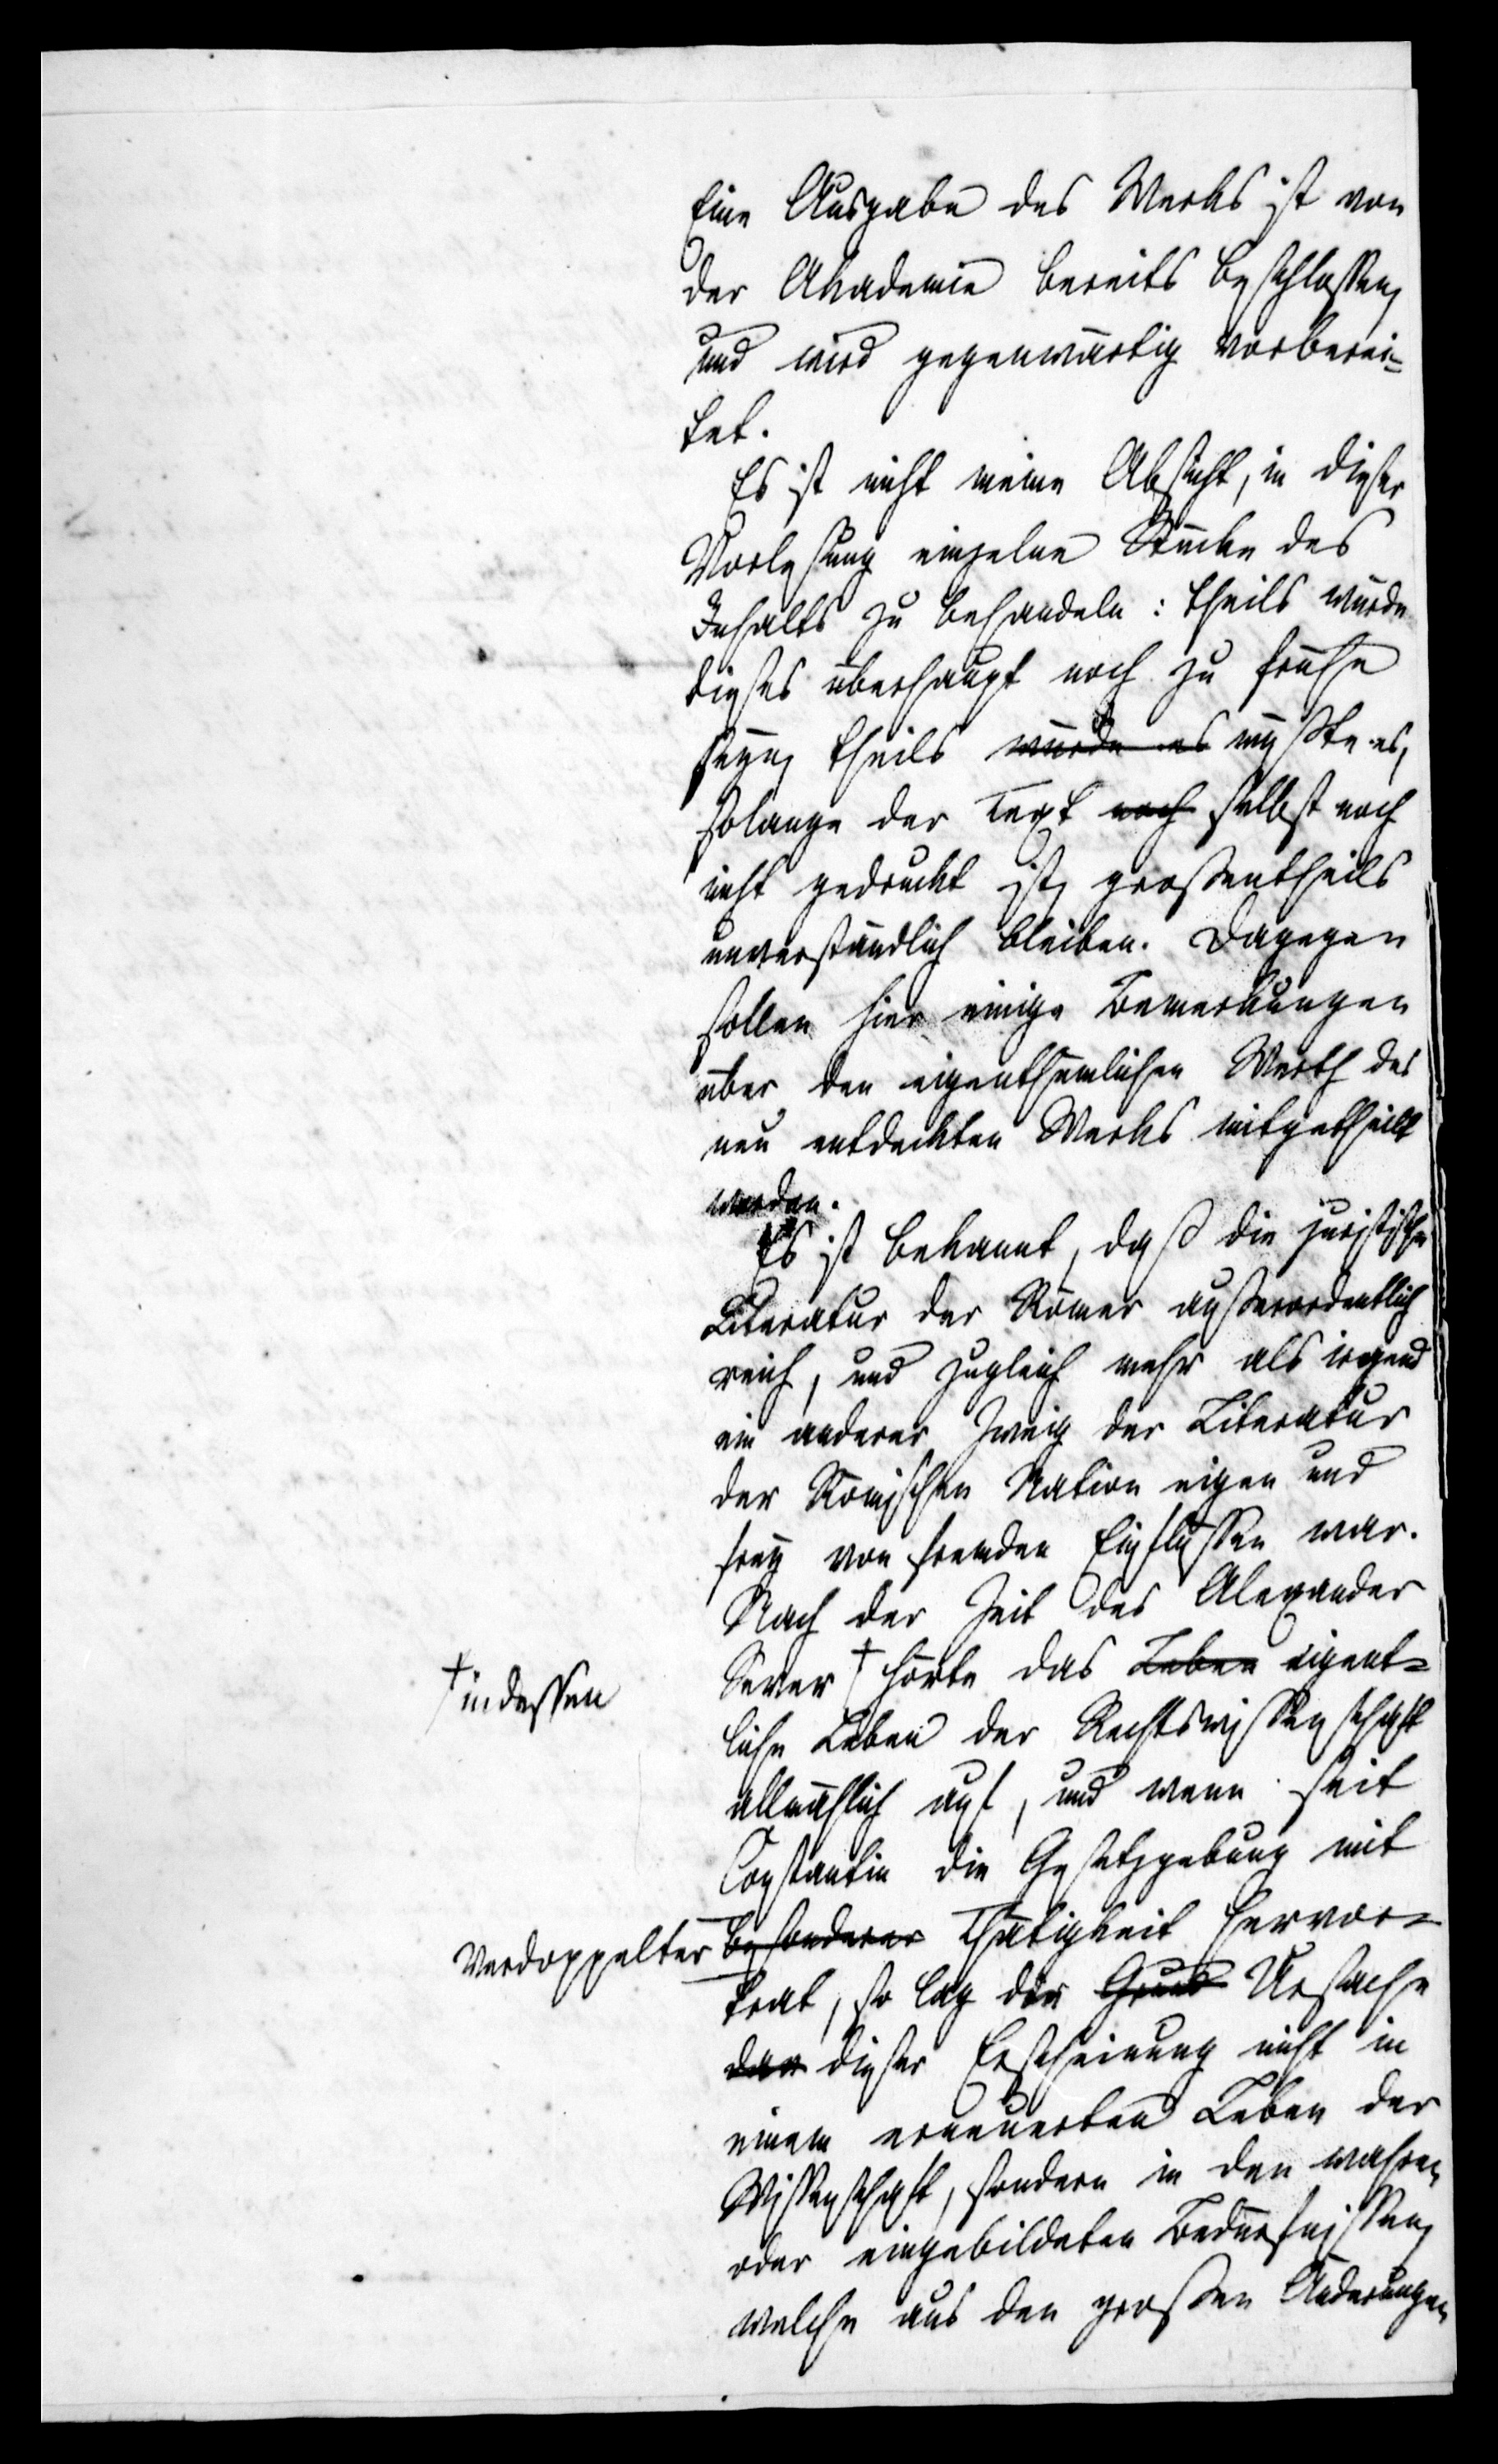 Eine Ausgabe des Werks ist von
der Akademie bereits beschlossen,
und wird gegenwärtig vorberei-
tet.
Es ist nicht meine Absicht, in dieser
Vorlesung einzelne Stücke des
Inhalts zu behandeln: theils würde
dieses überhaupt noch zu frühe
seyn, theils würde es müßte es,
solange der Text noch selbst noch
nicht gedruckt ist, großentheils
unverständlich bleiben. Dagegen
sollen hier einige Bemerkungen
über den eigenthümlichen Werth des
neu entdeckten Werks mitgetheilt
werden.
Es ist bekannt, daß die juristische
Literatur der Römer außerordentlich
reich, und zugleich mehr als irgend
ein anderer Zweig der Literatur
der Römischen Nation eigen und
frey von fremden Einflüssen war.
Nach der Zeit des Alexander
Sever † hörte das Leben eigent-
† indessen
liche Leben der Rechtswissenschaft
allmählich auf, und wenn seit
Constantin die Gesetzgebung mit
verdoppelter besonderer Thätigkeit hervor-
trat, so lag die Grund Ursache
der dieser Erscheinung nicht in
einem erneuerten Leben der
Wissenschaft, sondern in den wahren
oder eingebildeten Bedürfnissen,
welche aus den großen Änderungen